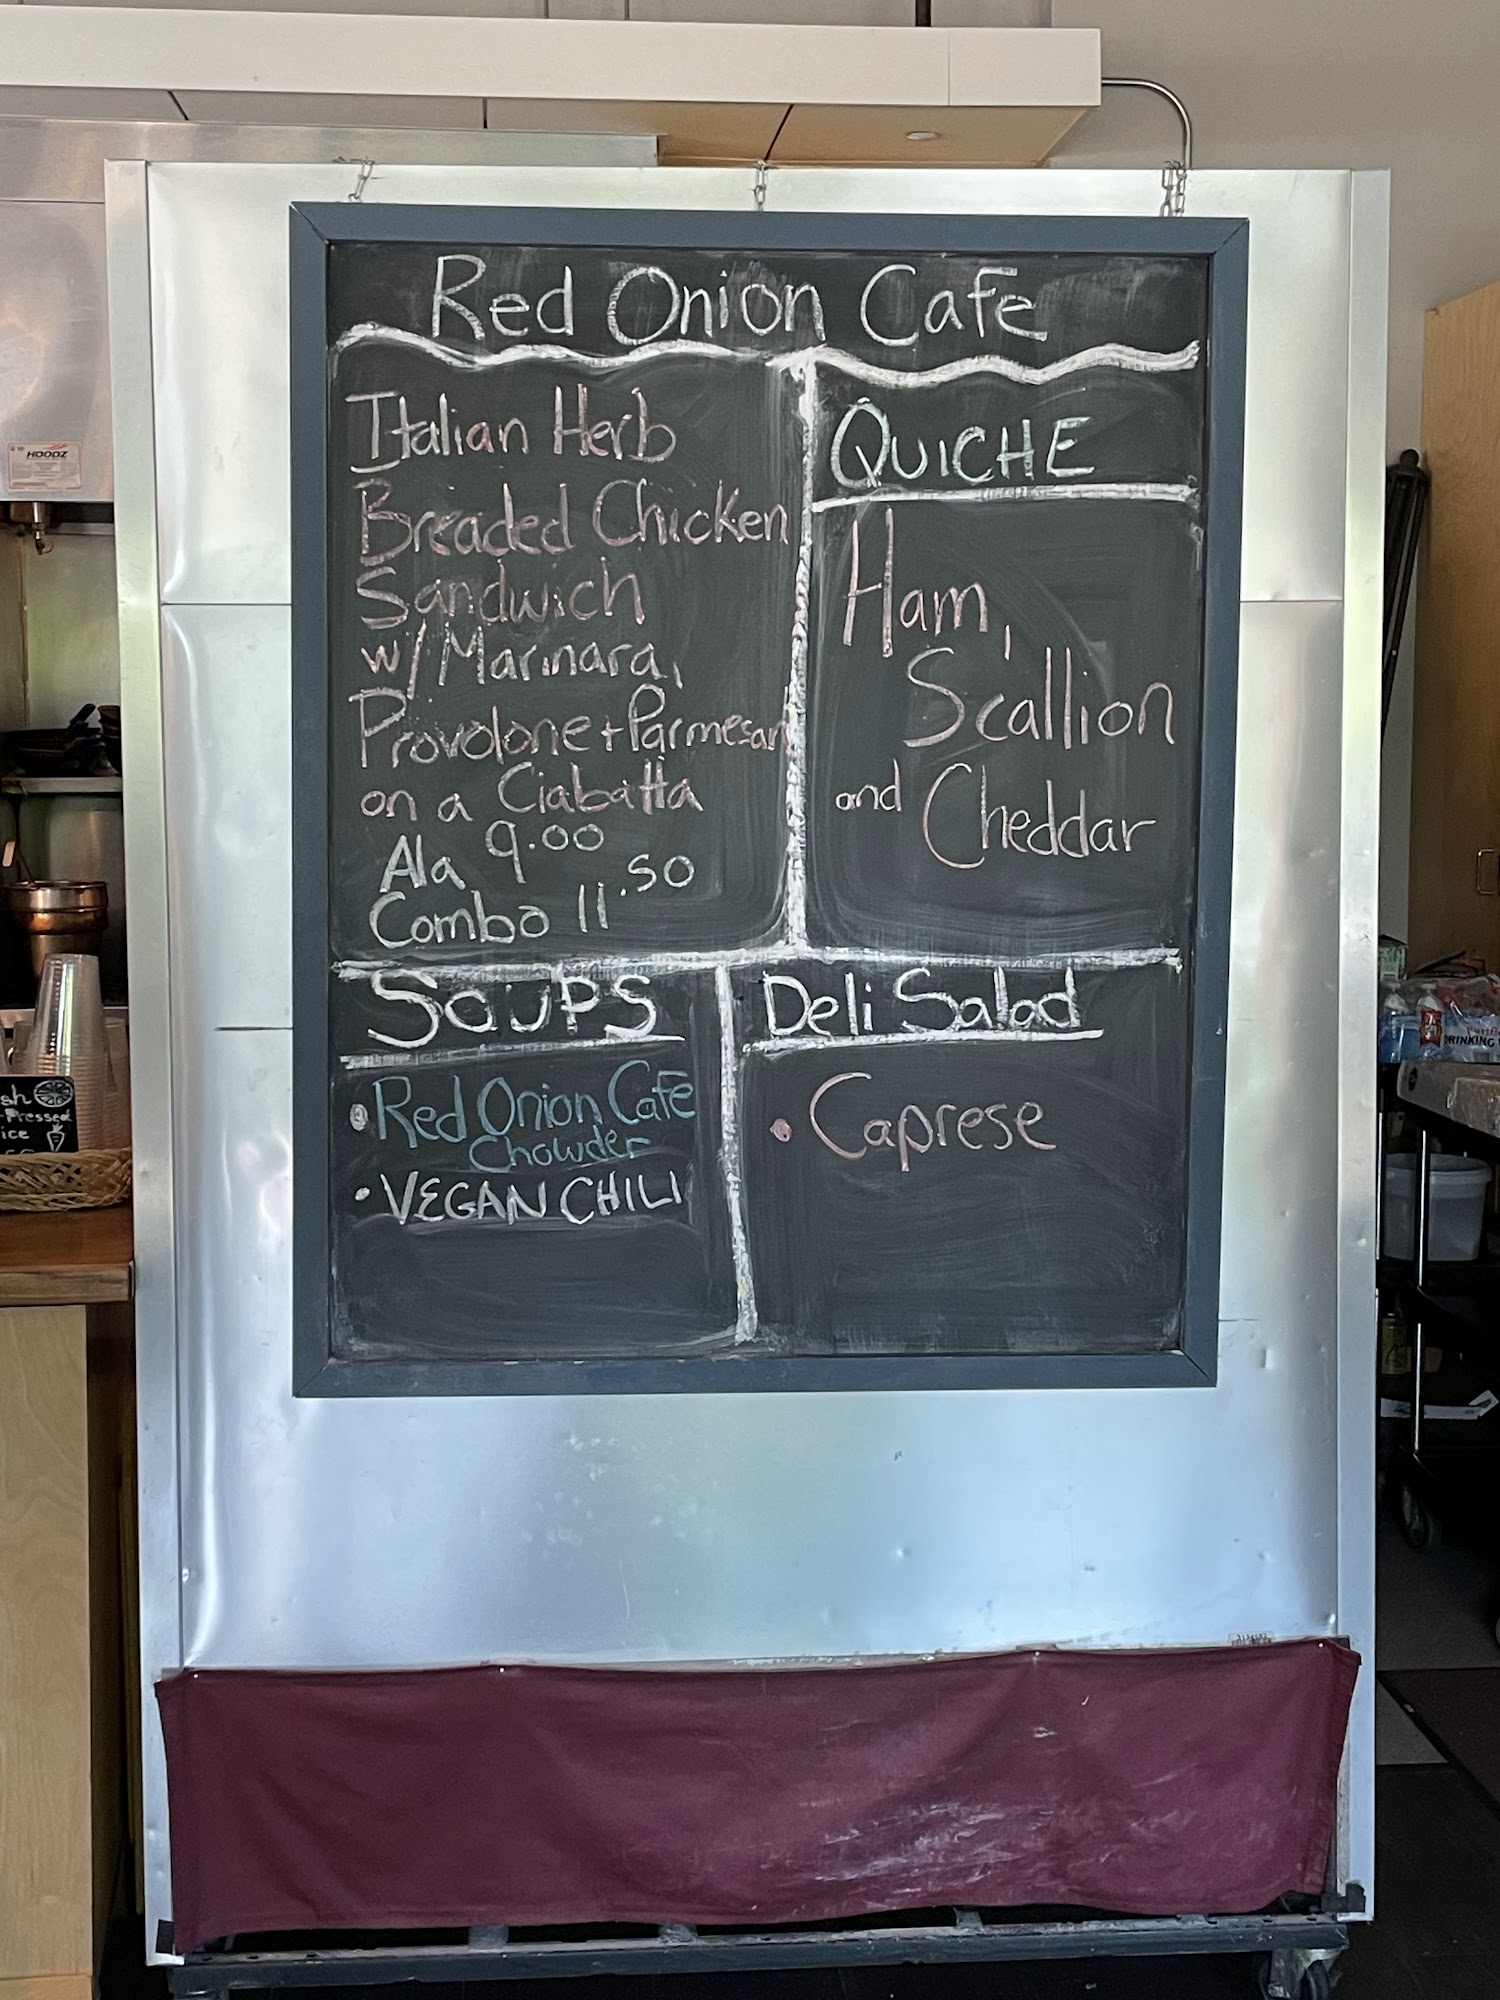 Red Onion Cafe
Italian Herb
Breaded Chicken
Sandwich
w/ Marinara,
Provolone + Parmesan
on a Ciabatta
Ala 9.00
Combo 11.50
QUICHE
Ham,
Scallion
and Cheddar
SOUPS
• Red Onion Cafe
Chowder
• VEGAN CHILI
Deli Salad
• Caprese
HOODZ
sh
Pressed
ice
DRINKING